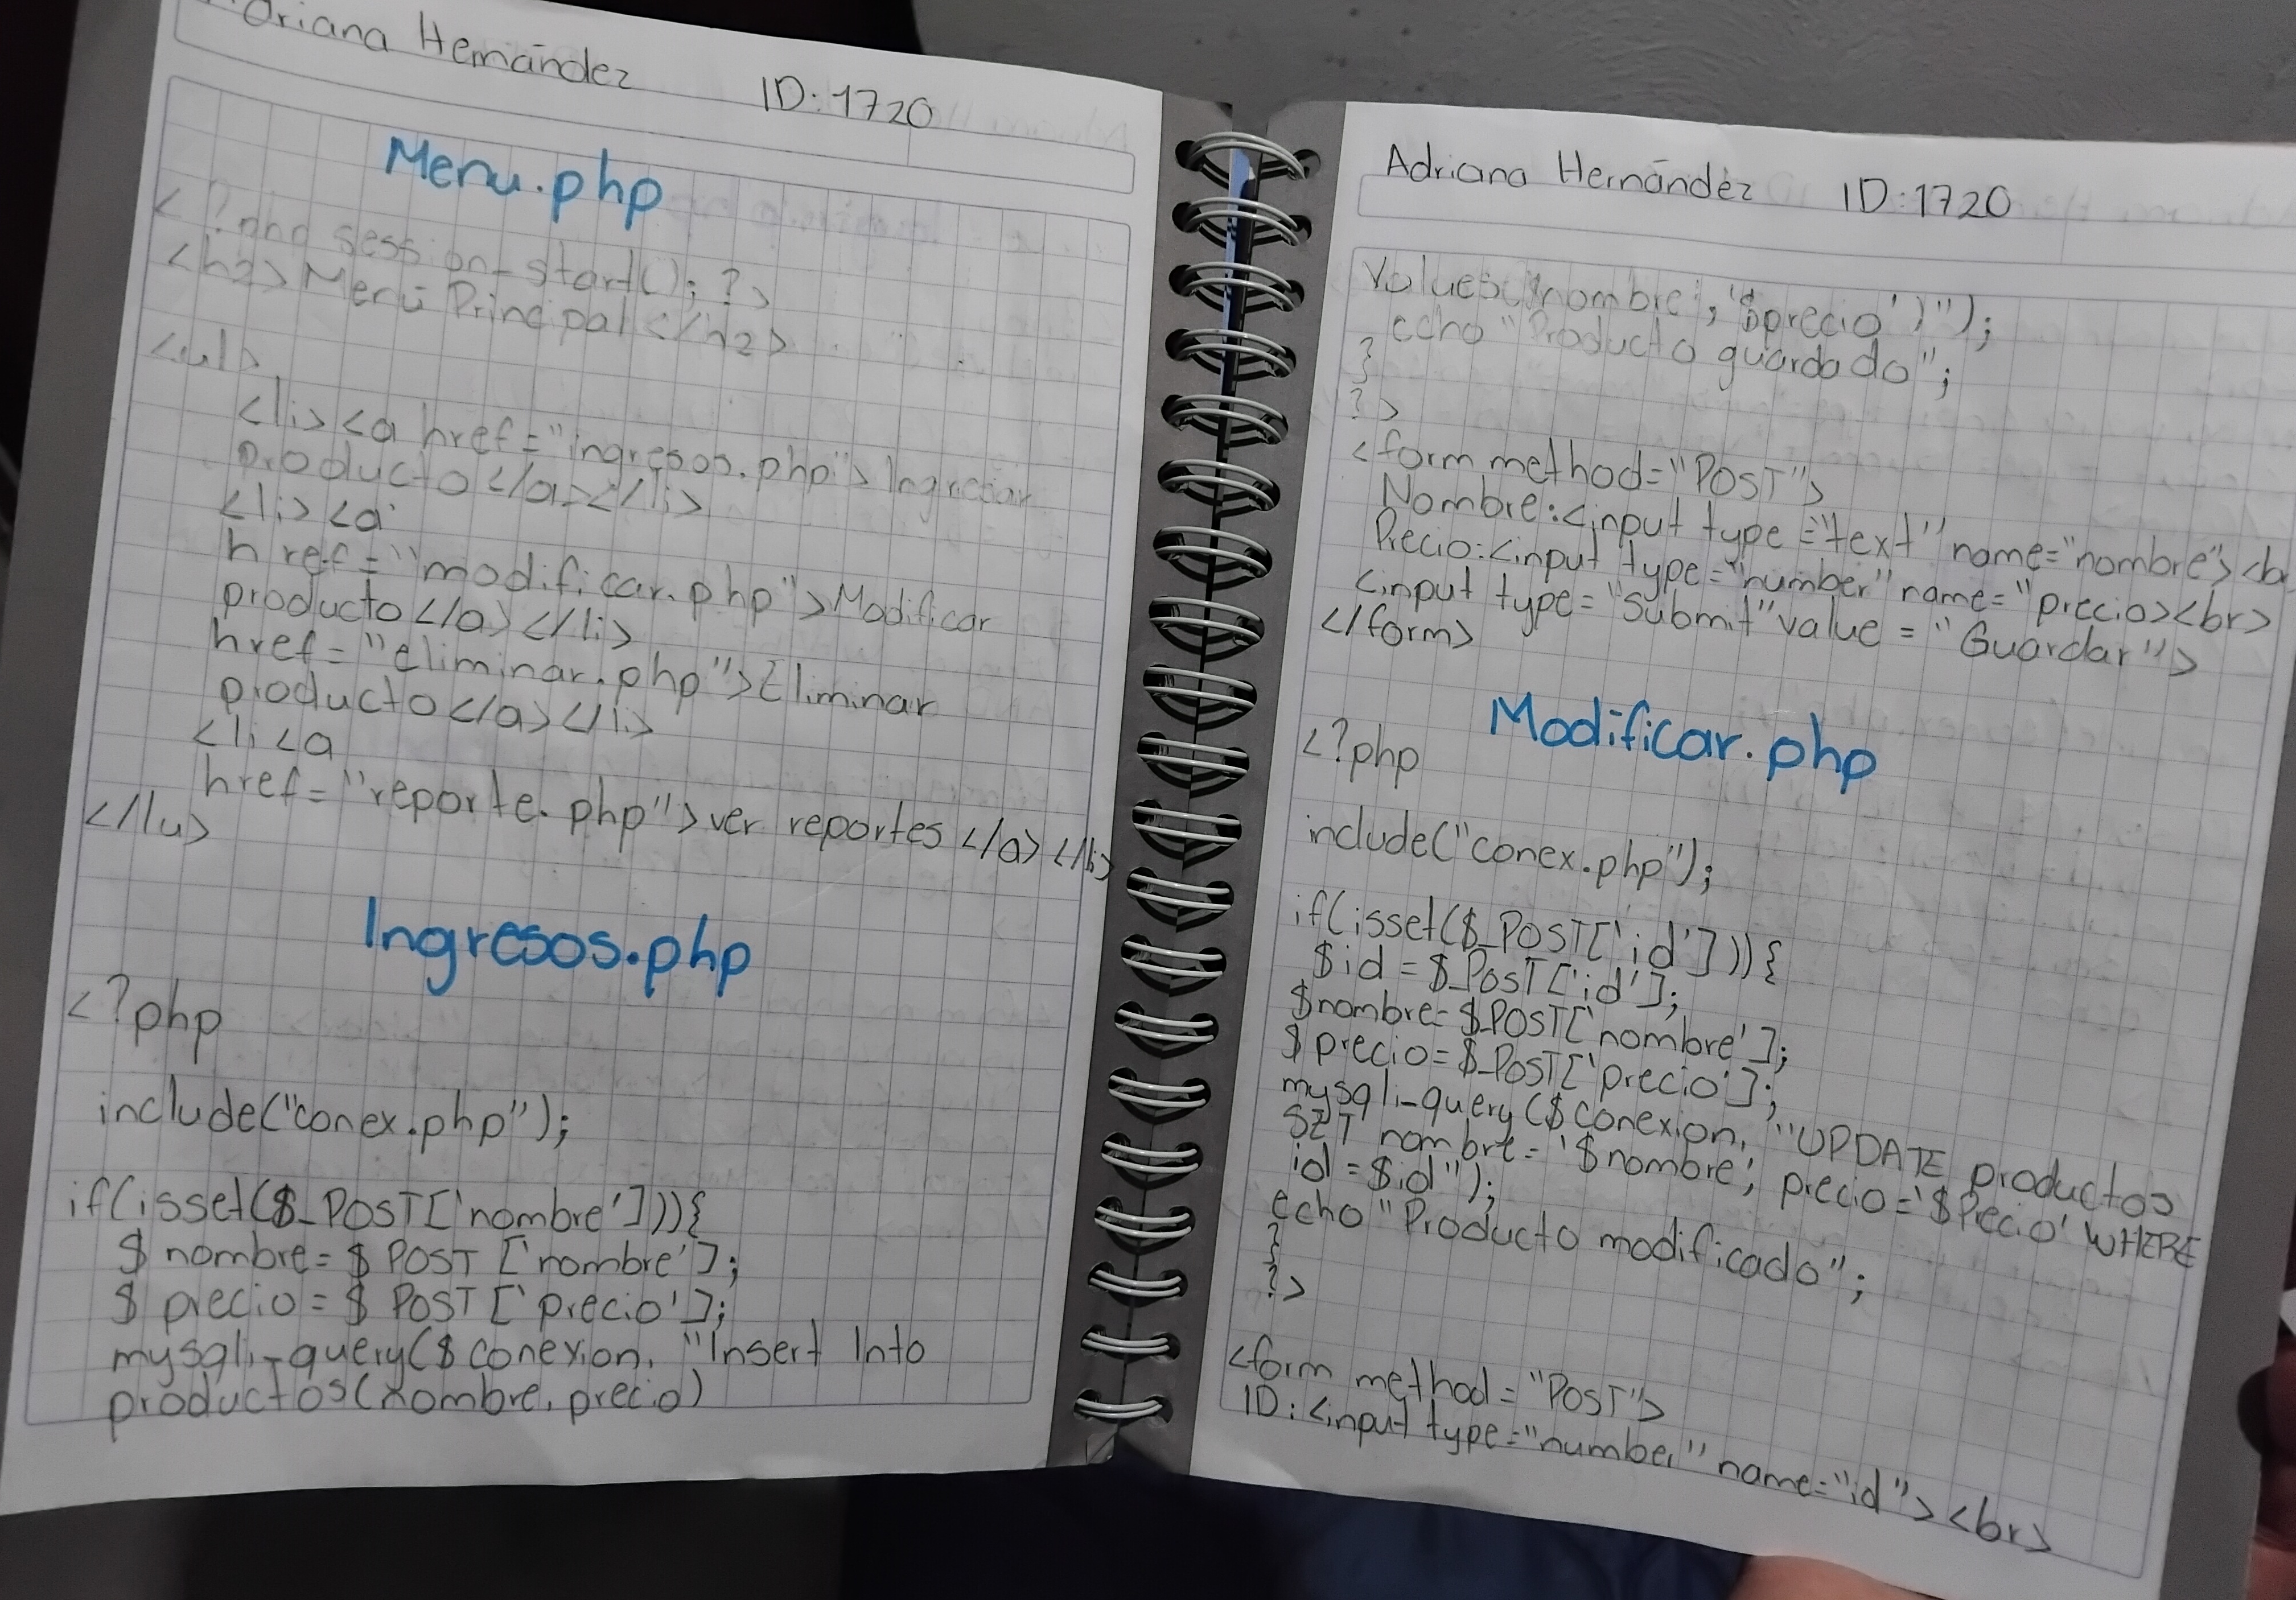 Adriana Hernández ID: 1720
Menu.php
<?php session_start(); ?>
<h2>Menú Principal</h2>
<ul>
<li><a href="ingresos.php">Ingresar
producto</a></li>
<li><a
href="modificar.php">Modificar
producto</a></li>
href="eliminar.php">Eliminar
producto</a></li>
<li<a
href="reporte.php">ver reportes</a></li>
</lu>
Ingresos.php
<?php
include("conex.php");
if(isset($_POST['nombre'])){
$nombre=$ POST ['nombre'];
$ precio = $ POST ['precio'];
mysqli_query($conexion, "Insert Into
productos(nombre, precio)
Adriana Hernández ID:1720
Values('$nombre', '$precio')");
echo "Producto guardado";
}
?>
<form method="POST">
Nombre:<input type="text" name="nombre"><br
Precio:<input type="number" name="precio><br>
<input type="submit" value="Guardar">
</form>
Modificar.php
<?php
include("conex.php");
if(isset($_POST['id'])){
$id = $_POST['id'];
$nombre=$_POST['nombre'];
$precio=$_POST['precio'];
mysqli_query($conexion, "UPDATE productos
SET nombre='$nombre', precio='$Precio' WHERE
id=$id");
echo "Producto modificado";
}
?>
<form method="POST">
ID:<input type="number" name="id"><br>